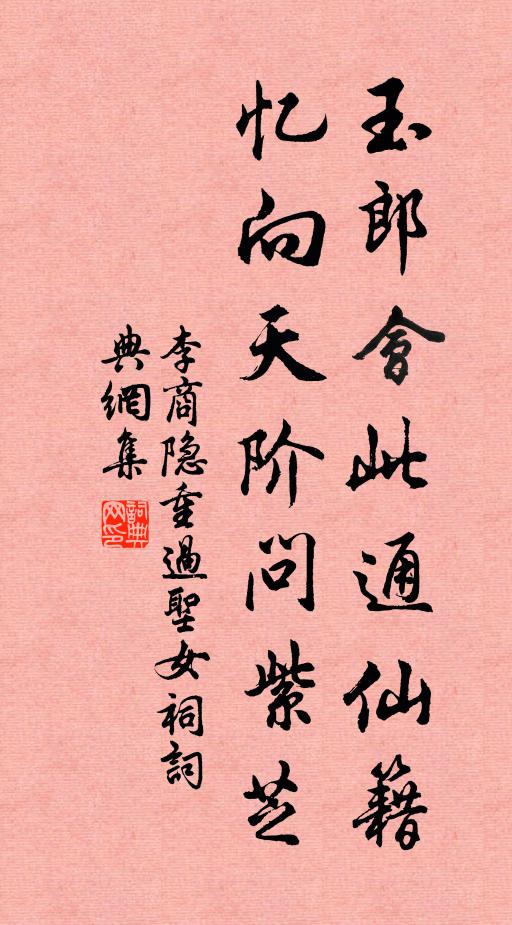 玉郎會此通仙籍
忆向天阶问紫芝
李商隐重過聖女祠詞
典網集
詞典
网印